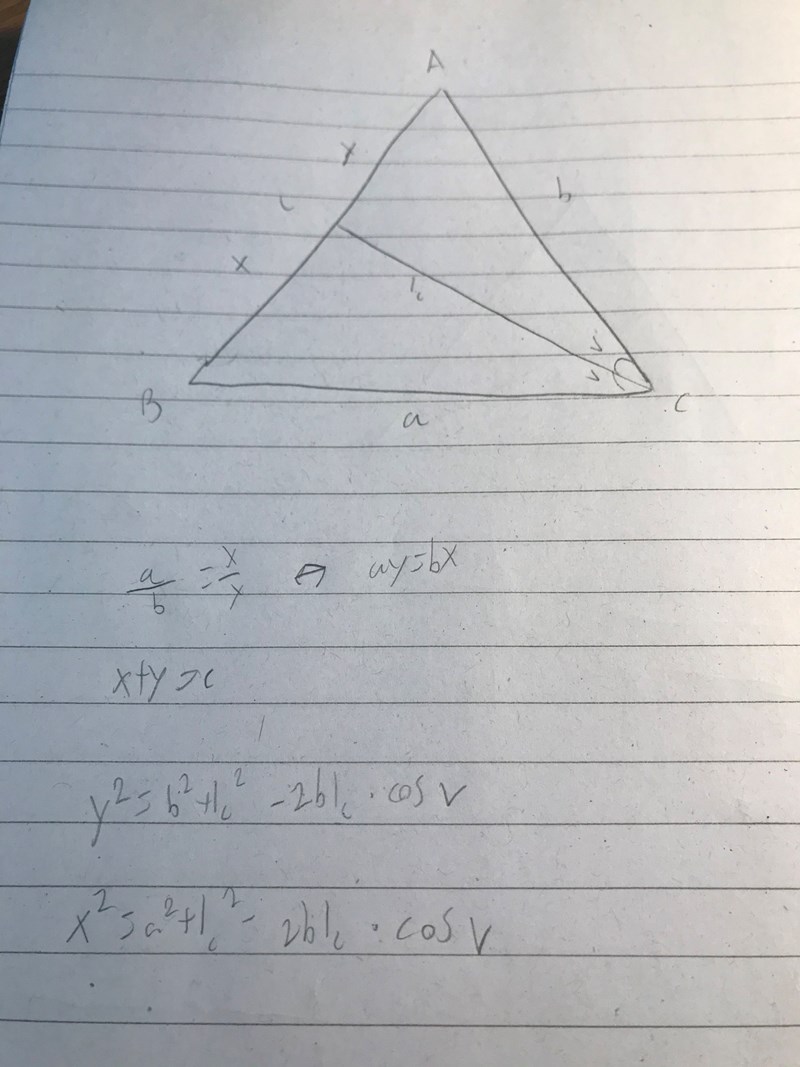 A
y
c
b
x
l_c
v
v
B
a
C
a/b = x/y ⇔ ay=bx
x+y=c
y²=b²+l_c²-2bl_c·cos v
x²=a²+l_c²-2bl_c·cos v